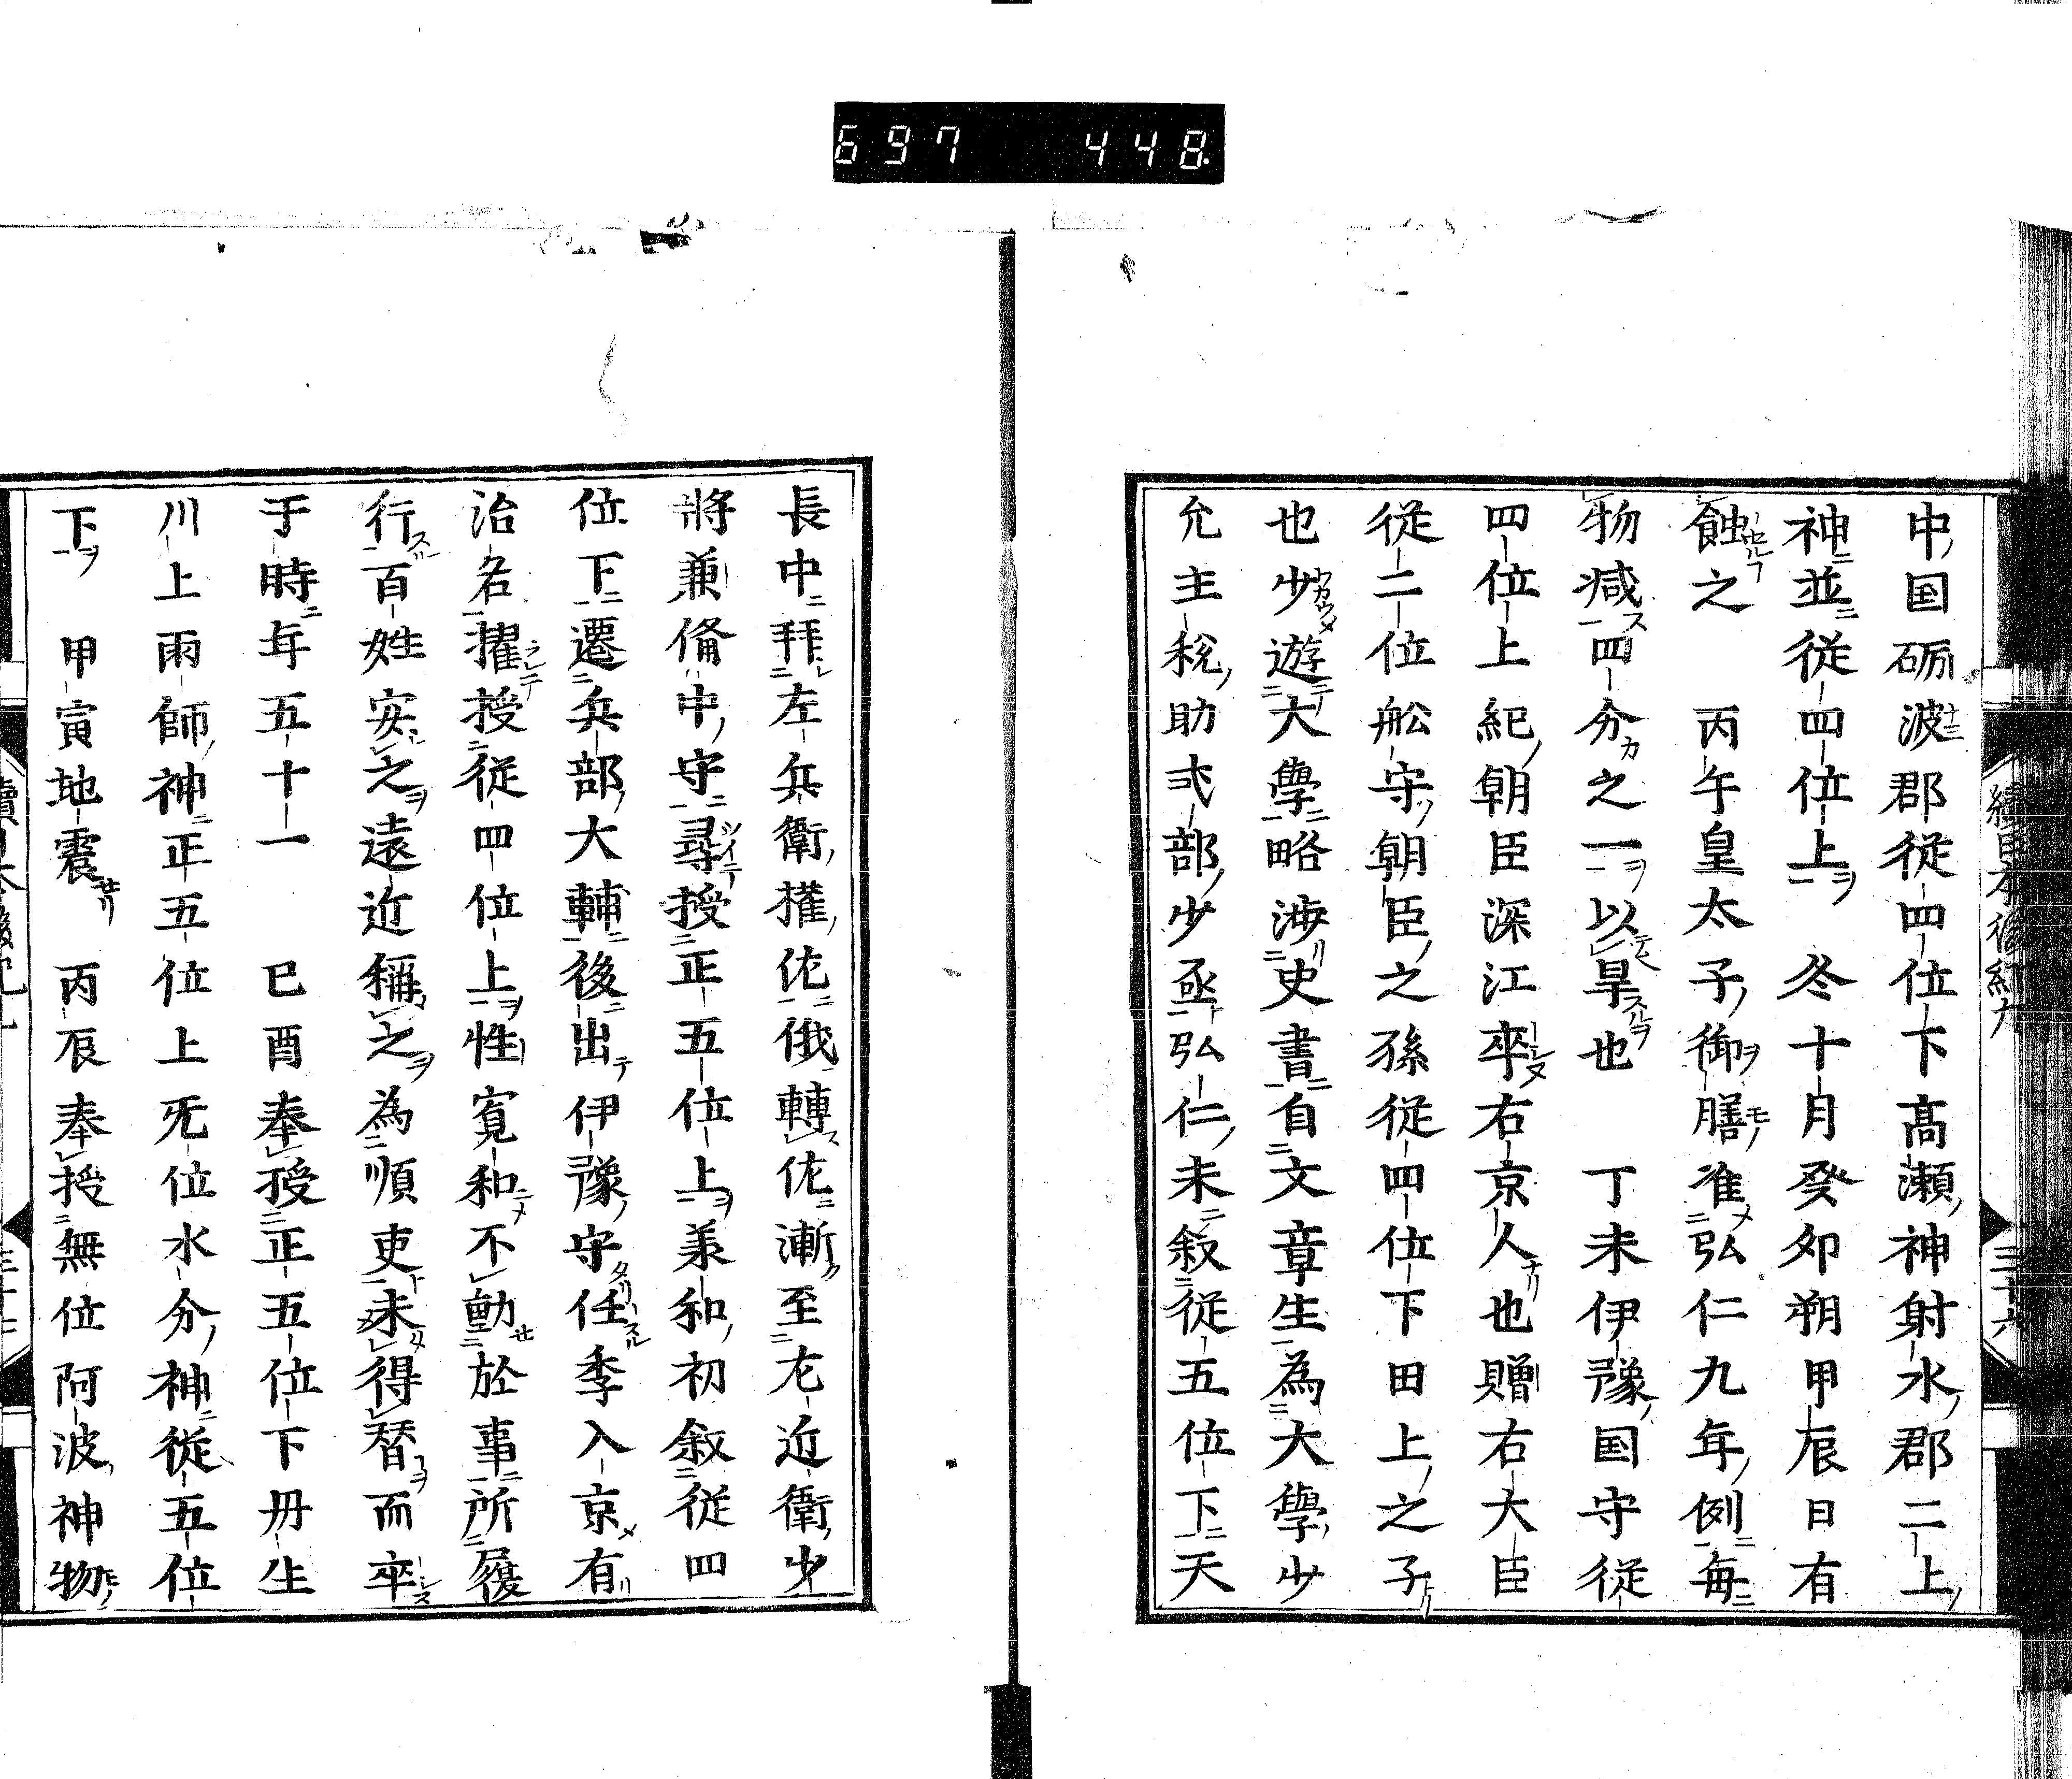 697 448.
中国砺波郡従四位下高瀬神射水郡二上
神並従四位上 冬十月癸卯朔甲辰日有
蝕之 丙午皇太子御膳准弘仁九年例毎
物减四分之一以旱也 丁未伊豫国守従
四位上紀朝臣深江卒右京人也贈右大臣
従二位舩守朝臣之孫従四位下田上之子
也少遊大學略渉史書自文章生為大學少
允主税助式部少丞弘仁未叙従五位下天
長中拜左兵衛權佐俄轉佐漸至左近衛少
將兼俻中守尋授正五位上羕和初叙従四
位下遷兵部大輔後出伊豫守任季入京有
治名擢授従四位上性寛和不動於事所履
行百姓安之遠近稱之為順吏未得替而卒
于時年五十一 巳酉奉授正五位下丹生
川上雨師神正五位上无位水分神従五位
下 甲寅地震 丙辰奉授無位阿波神物